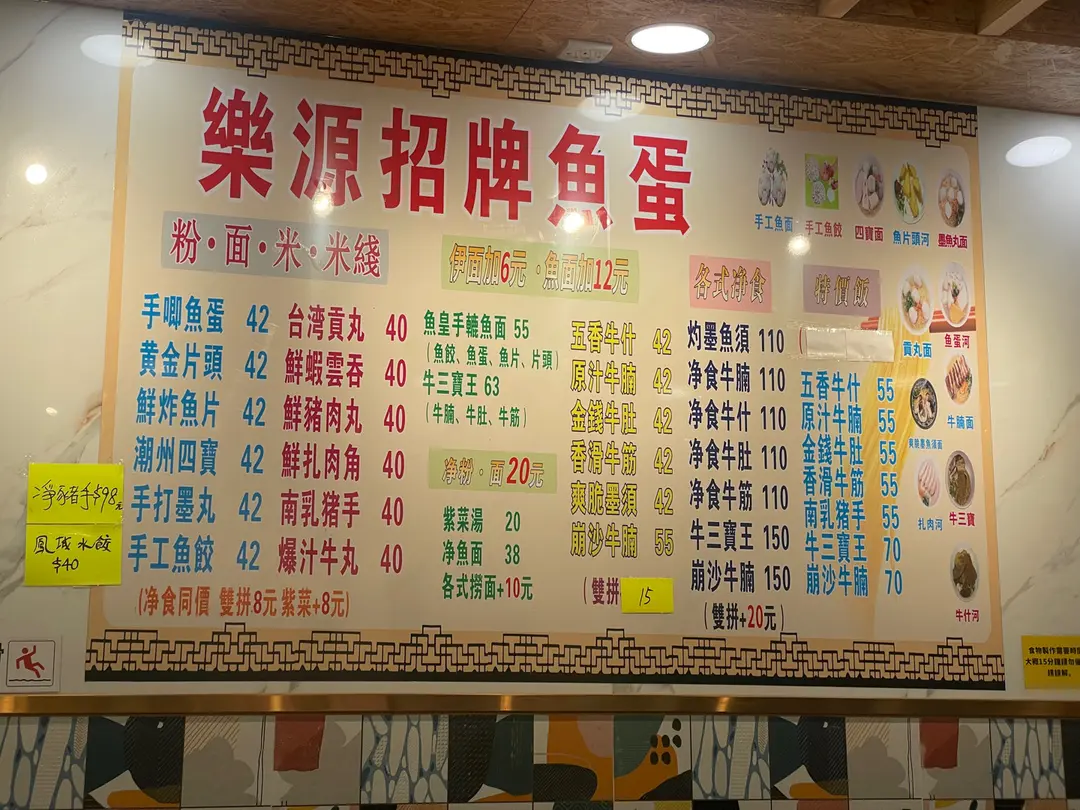 樂源招牌魚蛋
粉·面·米·米綫
手唧魚蛋 42
黄金片頭 42
鮮炸魚片 42
潮州四寶 42
手打墨丸 42
手工魚餃 42
台湾貢丸 40
鮮蝦雲吞 40
鮮豬肉丸 40
鮮扎肉角 40
南乳豬手 40
爆汁牛丸 40
(净食同價 雙拼8元 紫菜+8元)
伊面加6元·魚面加12元
魚皇手轆魚面 55
(魚餃、魚蛋、魚片、片頭)
牛三寶王 63
(牛腩、牛肚、牛筋)
净粉·面20元
紫菜湯 20
净魚面 38
各式撈面+10元
五香牛什 42
原汁牛腩 42
金錢牛肚 42
香滑牛筋 42
爽脆墨須 42
崩沙牛腩 55
(雙拼 15
各式净食
灼墨魚須 110
净食牛腩 110
净食牛什 110
净食牛肚 110
净食牛筋 110
牛三寶王 150
崩沙牛腩 150
(雙拼+20元)
特價飯
五香牛什 55
原汁牛腩 55
金錢牛肚 55
香滑牛筋 55
南乳豬手 55
牛三寶王 70
崩沙牛腩 70
手工魚面
手工魚餃
四寶面
魚片頭河
墨魚丸面
貢丸面
魚蛋河
爽脆墨魚須面
牛腩面
扎肉河
牛三寶
牛什河
淨豬手$98元
鳳城水餃
$40
食物製作需要時間
大概15分鐘請勿催
請諒解。